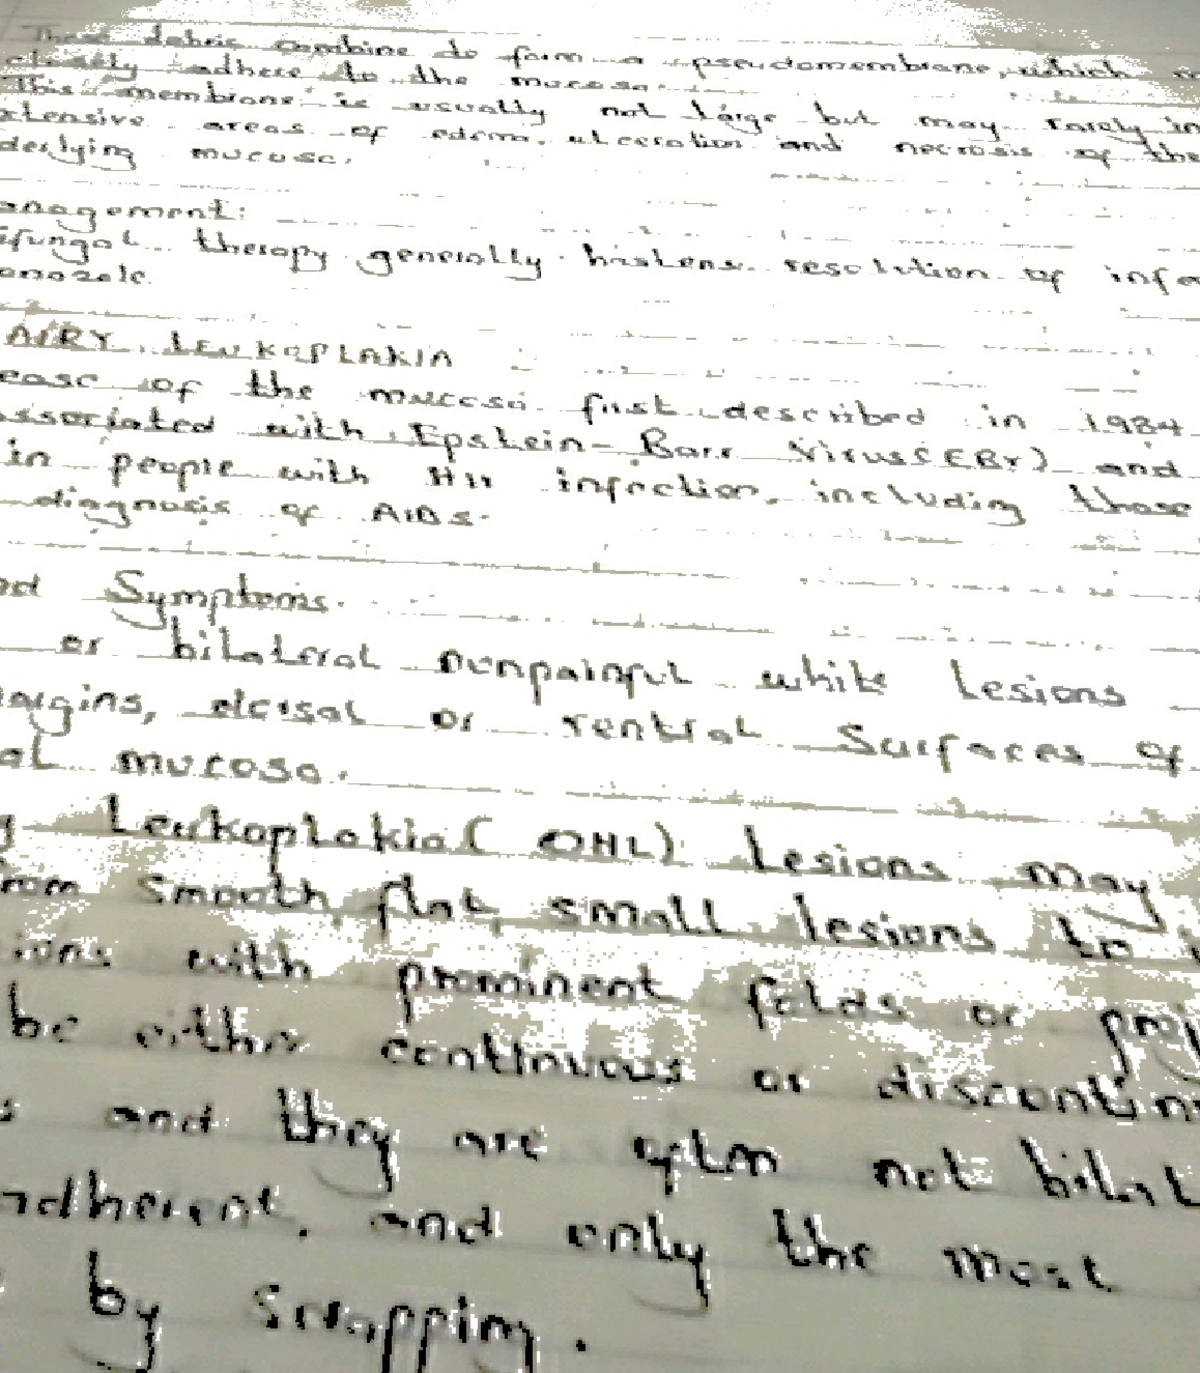 These debris combine to form a pseudomembrane, which
adhere to the mucosa.
This membrane is usually not large but may rarely in
xtensive areas of edema, ulceration and necrosis of the
derlying mucosa.
anagement:
ifungal therapy generally hastens resolution of infe
onazole.
AIRY LEUKOPLAKIA
ease of the mucosa first described in 1984
ssociated with Epstein-Barr Virus(EBV) and
in people with HIV infection, including those
diagnosis of AIDS.
nd Symptoms.
or bilateral nonpainful white lesions
margins, dorsal or ventral surfaces of
al mucosa.
y Leukoplakia (OHL) lesions may
rom smooth, flat, small lesions to i
ions with prominent folds or proj
be either continuous or discontinu
s and they are often not bilat
adherent, and only the most
by scrapping.